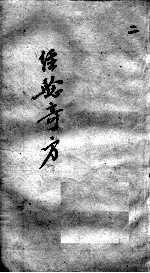 二
經驗奇方